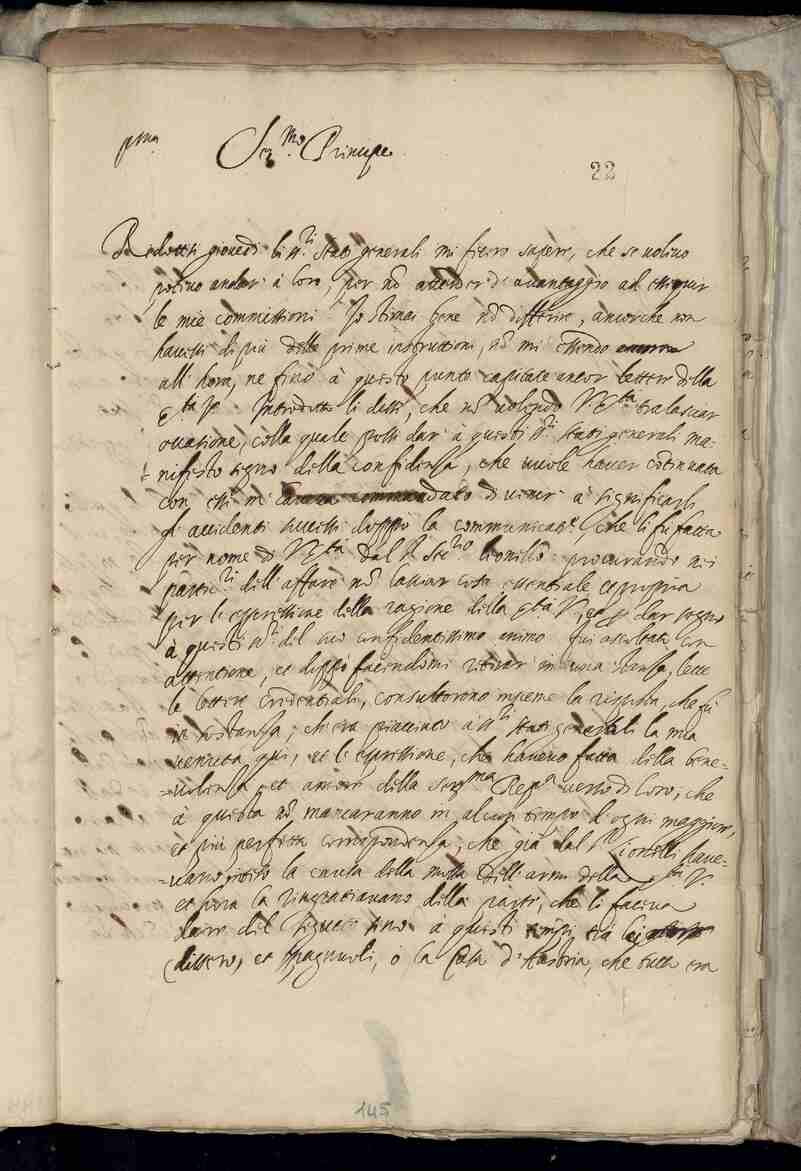 p.ma Ser.mo Principe
22
Redottisi giovedì li ss.ri Stati generali mi fecero sapere, che se volevo
potevo andar à loro, per nō attender d'avantaggio ad esseguir
le mie commissioni. Io stimai bene nō differire, ancorche non
havessi di più delle prime instruttioni, nō mi essendo
all'hora, ne fino à questo punto capitate ancor lettere della
S.tà V. Introdotto li dissi, che nō volendo V. S.tà tralasciar
occasione, colla quale possi dar à questi ss.ri Stati generali ma-
nifesto segno della confidenza, che vuole haver cōtinuata
con essi mi commandato di venir à significarli
gl'accidenti successi doppò la communicat.e che li fu fatta
per nome di V. S.tà dal s.r Seg.rio Lionello procurando nei
partic.ri dell'affare nō lasciar cosa essentiale et propria
per l'espressione della ragione della S.tà V., et p dar segno
à questi ss.ri del suo confidentissimo animo. fui ascoltato con
attentione, et doppò facendomi retirar in una stanza, lette
le lettere credentiali, consultorono insieme la risposta, che fù
in sostanza, ch'era piacciuta à ss.ri Stati generali la mia
venuta qui, et l'espressione, che havevo fatta della bene-
volenza, et amore della Ser.ma Rep.ca verso di loro, che
à questa nō mancaranno in alcun tempo d'ogni maggiore,
et più perfetta corrispondenza, che già dal s.r Lionello have-
vano inteso la causa della mossa dell'armi della S.tà V.
et hora la ringratiavano della parte, che li faceva
dare del seguito sino à questi tempi trà lei
(dissero) et Spagnuoli, ò la Casa d'Austria, che tutta era
145